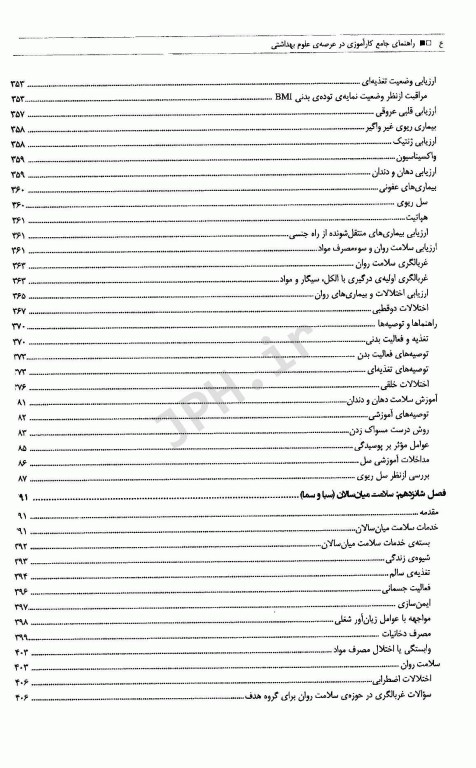 ع □■ راهنمای جامع کارآموزی در عرصه‌ی علوم بهداشتی
ارزیابی وضعیت تغذیه‌ای ۳۵۳
مراقبت ازنظر وضعیت نمایه‌ی توده‌ی بدنی BMI ۳۵۳
ارزیابی قلبی عروقی ۳۵۷
بیماری ریوی غیر واگیر ۳۵۸
ارزیابی ژنتیک ۳۵۸
واکسیناسیون ۳۵۹
ارزیابی دهان و دندان ۳۵۹
بیماری‌های عفونی ۳۶۰
سل ریوی ۳۶۰
هپاتیت ۳۶۱
ارزیابی بیماری‌های منتقل‌شونده از راه جنسی ۳۶۱
ارزیابی سلامت روان و سوءمصرف مواد ۳۶۱
غربالگری سلامت روان ۳۶۳
غربالگری اولیه‌ی درگیری با الکل، سیگار و مواد ۳۶۳
ارزیابی اختلالات و بیماری‌های روان ۳۶۵
اختلالات دوقطبی ۳۶۷
راهنماها و توصیه‌ها ۳۷۰
تغذیه و فعالیت بدنی ۳۷۰
توصیه‌های فعالیت بدن ۳۷۲
توصیه‌های تغذیه‌ای ۳۷۳
اختلالات خلقی ۳۷۶
آموزش سلامت دهان و دندان ۸۱
توصیه‌های آموزشی ۸۲
روش درست مسواک زدن ۸۳
عوامل مؤثر بر پوسیدگی ۸۵
مداخلات آموزشی سل ۸۶
بررسی ازنظر سل ریوی ۸۷
فصل شانزدهم: سلامت میان‌سالان (سبا و سما) ۹۱
مقدمه ۹۱
خدمات سلامت میان‌سالان ۹۱
بسته‌ی خدمات سلامت میان‌سالان ۳۹۲
شیوه‌ی زندگی ۳۹۳
تغذیه‌ی سالم ۳۹۴
فعالیت جسمانی ۳۹۶
ایمن‌سازی ۳۹۷
مواجهه با عوامل زیان‌آور شغلی ۳۹۸
مصرف دخانیات ۳۹۹
وابستگی یا اختلال مصرف مواد ۴۰۳
سلامت روان ۴۰۳
اختلالات اضطرابی ۴۰۶
سؤالات غربالگری در حوزه‌ی سلامت روان برای گروه هدف ۴۰۶
JPH.ir